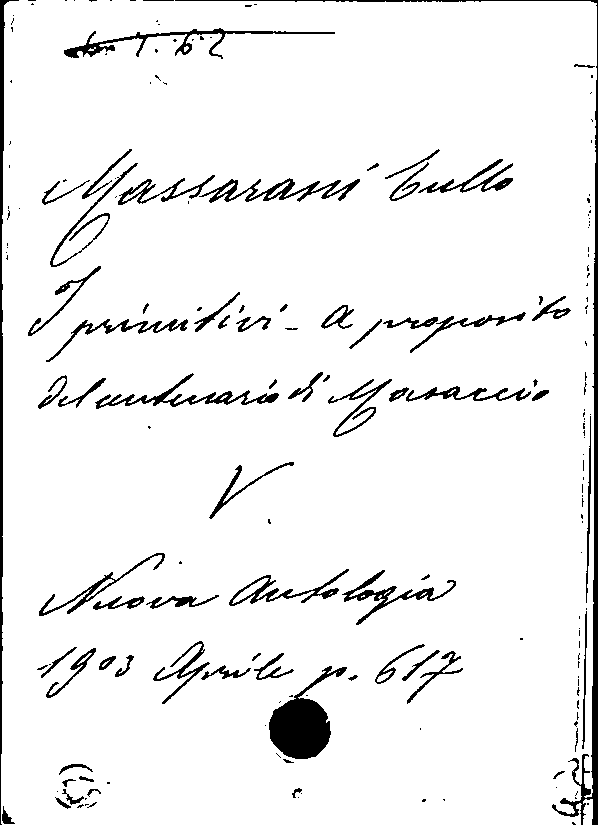 7. 62
Massarani Tullo
I primitivi - A proposito
del centenario di Masaccio
V
Nuova Antologia
1903 Aprile p. 617